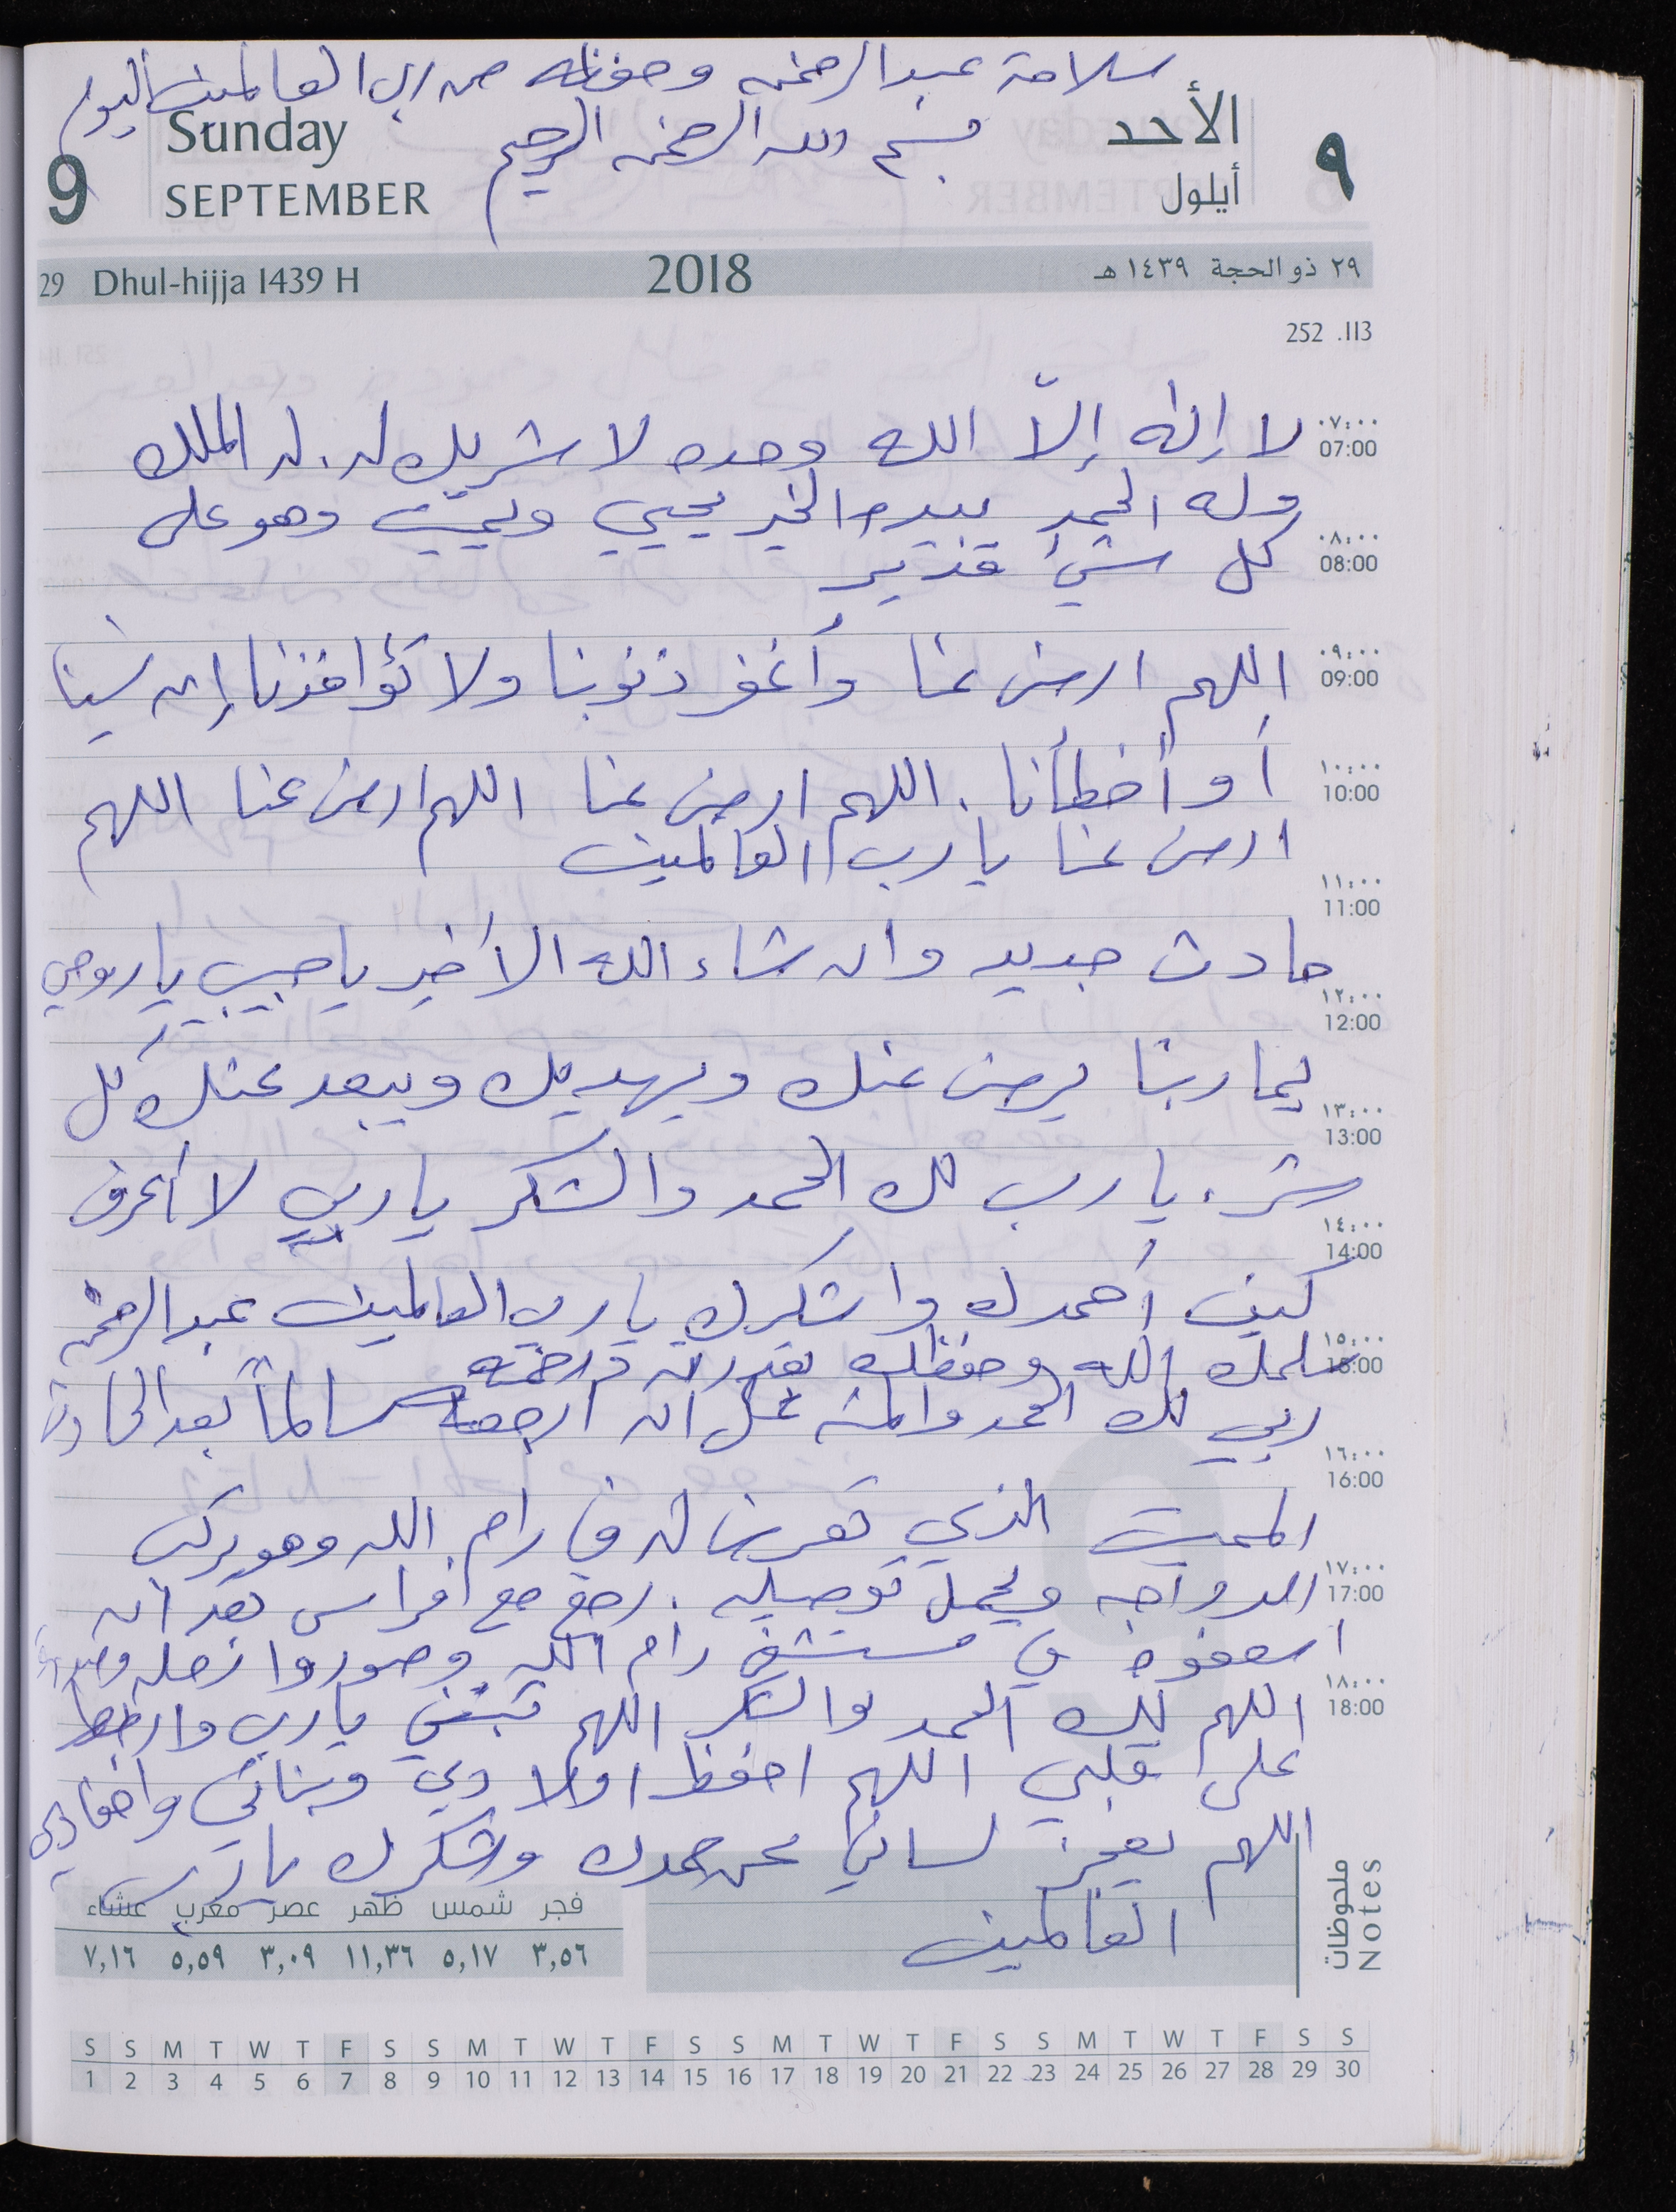 سلامة عبدالرحمن وحفظه من رب العالمين اليوم
بسم الله الرحمن الرحيم
9 Sunday SEPTEMBER
٩ الأحد أيلول
29 Dhul-hijja 1439 H 2018 ٢٩ ذو الحجة ١٤٣٩ هـ
252 .113
٠٧:٠٠ 07:00
لا إله إلاّ الله وحده لا شريك له. له الملك
وله الحمد بيده الخير يحيي ويميت وهو على
٠٨:٠٠ 08:00
كل شيء قدير
٠٩:٠٠ 09:00
اللهم ارض عنا وأغفر ذنوبنا ولا تؤاخذنا إن نسينا
١٠:٠٠ 10:00
أو أخطأنا. اللهم ارض عنا اللهم ارض عنا اللهم
ارض عنا يا رب العالمين
١١:٠٠ 11:00
حادث جديد وان شاء الله الأخير يا حبيبي يا روحي
١٢:٠٠ 12:00
يما ربنا يرضى عنك ويهديك ويبعد عنك كل
١٣:٠٠ 13:00
شر. يا رب لك الحمد والشكر يا ربي لا أعرف
١٤:٠٠ 14:00
كيف أحمدك واشكرك يا رب العالمين عبدالرحمن
١٥:٠٠ 15:00
سلمك الله وحفظك بقدرته ورحمته
ربي لك الحمد والمنه على ان ارجعته سالماً بعد الحادث
١٦:٠٠ 16:00
المميت الذي تعرض له في رام الله وهو يركب
١٧:٠٠ 17:00
الدراجه ويحمل توصيله. رجع مع فراس بعد ان
اسعفوه في مستشفى رام الله وصوروا رجله
١٨:٠٠ 18:00
اللهم لك الحمد والشكر اللهم ثبتني يا رب واربط
على قلبي اللهم احفظ اولادي وبناتي واحفادي
اللهم يعجز لساني عن حمدك وشكرك يا رب
العالمين
ملحوظات Notes
فجر شمس ظهر عصر مغرب عشاء
٣,٥٦ ٥,١٧ ١١,٣٦ ٣,٠٩ ٥,٥٩ ٧,١٦
S S M T W T F S S M T W T F S S M T W T F S S M T W T F S S
1 2 3 4 5 6 7 8 9 10 11 12 13 14 15 16 17 18 19 20 21 22 23 24 25 26 27 28 29 30